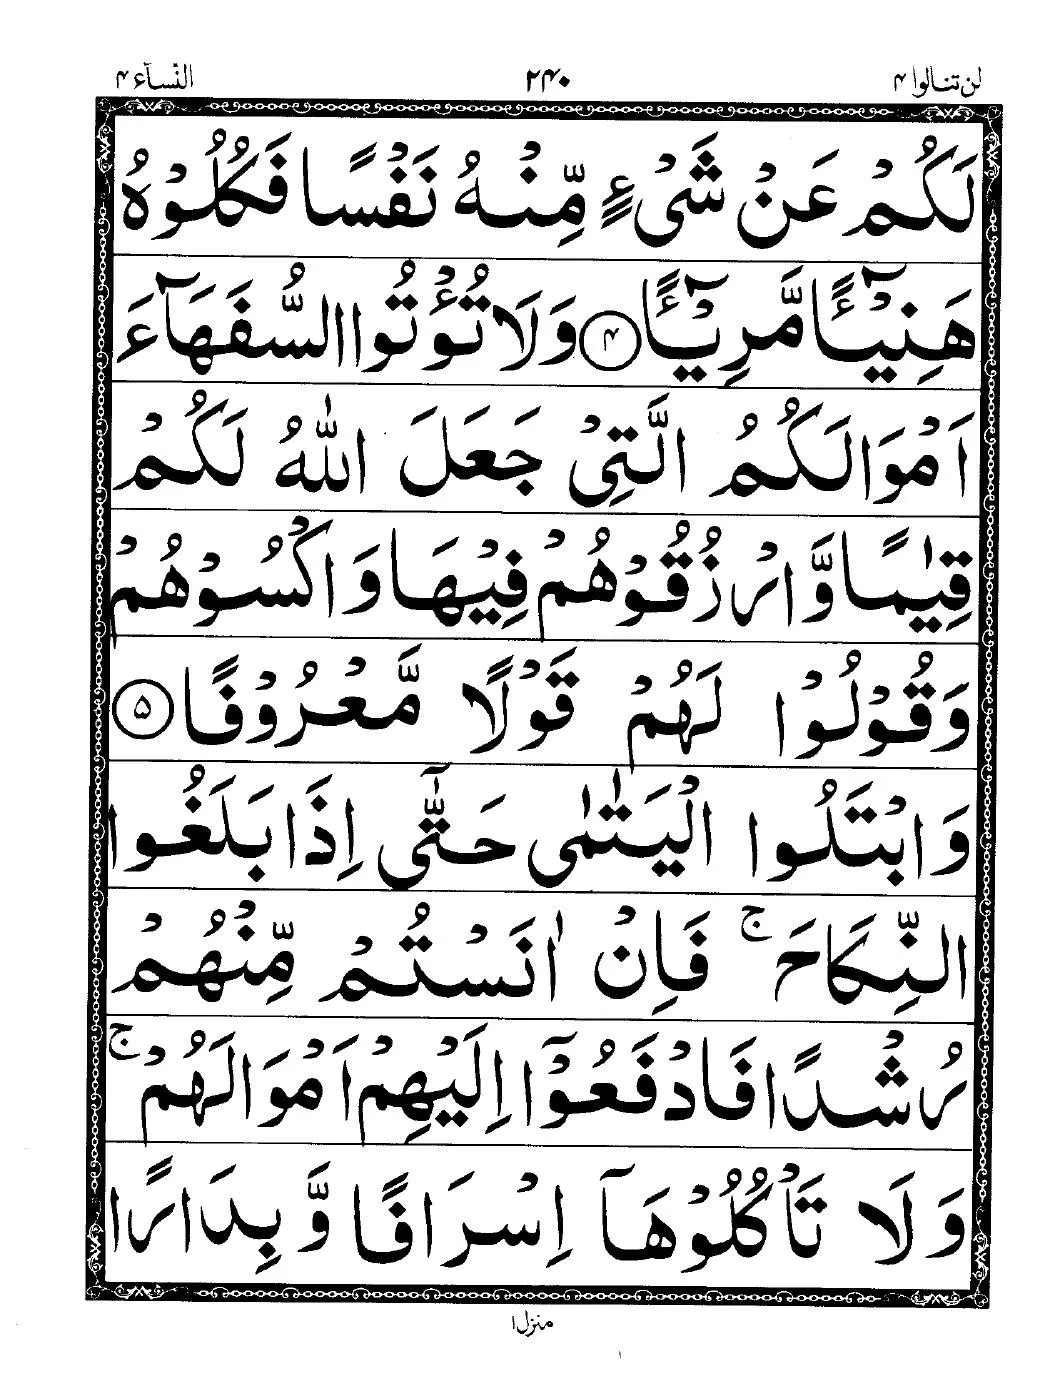 لن تنالوا ۴ ۲۴۰ النّسآء ۴
لَكُمْ عَنْ شَیْءٍ مِّنْهُ نَفْسًا فَكُلُوْهُ
هَنِیْٓـًٔا مَّرِیْٓـًٔا ۴ وَلَا تُؤْتُوا السُّفَهَآءَ
اَمْوَالَكُمُ الَّتِیْ جَعَلَ اللّٰهُ لَكُمْ
قِیٰمًا وَّارْزُقُوْهُمْ فِیْهَا وَاكْسُوْهُمْ
وَقُوْلُوْا لَهُمْ قَوْلًا مَّعْرُوْفًا ۵
وَابْتَلُوا الْیَتٰمٰی حَتّٰۤی اِذَا بَلَغُوا
النِّكَاحَ ۚ فَاِنْ اٰنَسْتُمْ مِّنْهُمْ
رُشْدًا فَادْفَعُوْۤا اِلَیْهِمْ اَمْوَالَهُمْ ۚ
وَلَا تَاْكُلُوْهَاۤ اِسْرَافًا وَّبِدَارًا
منزل ۱